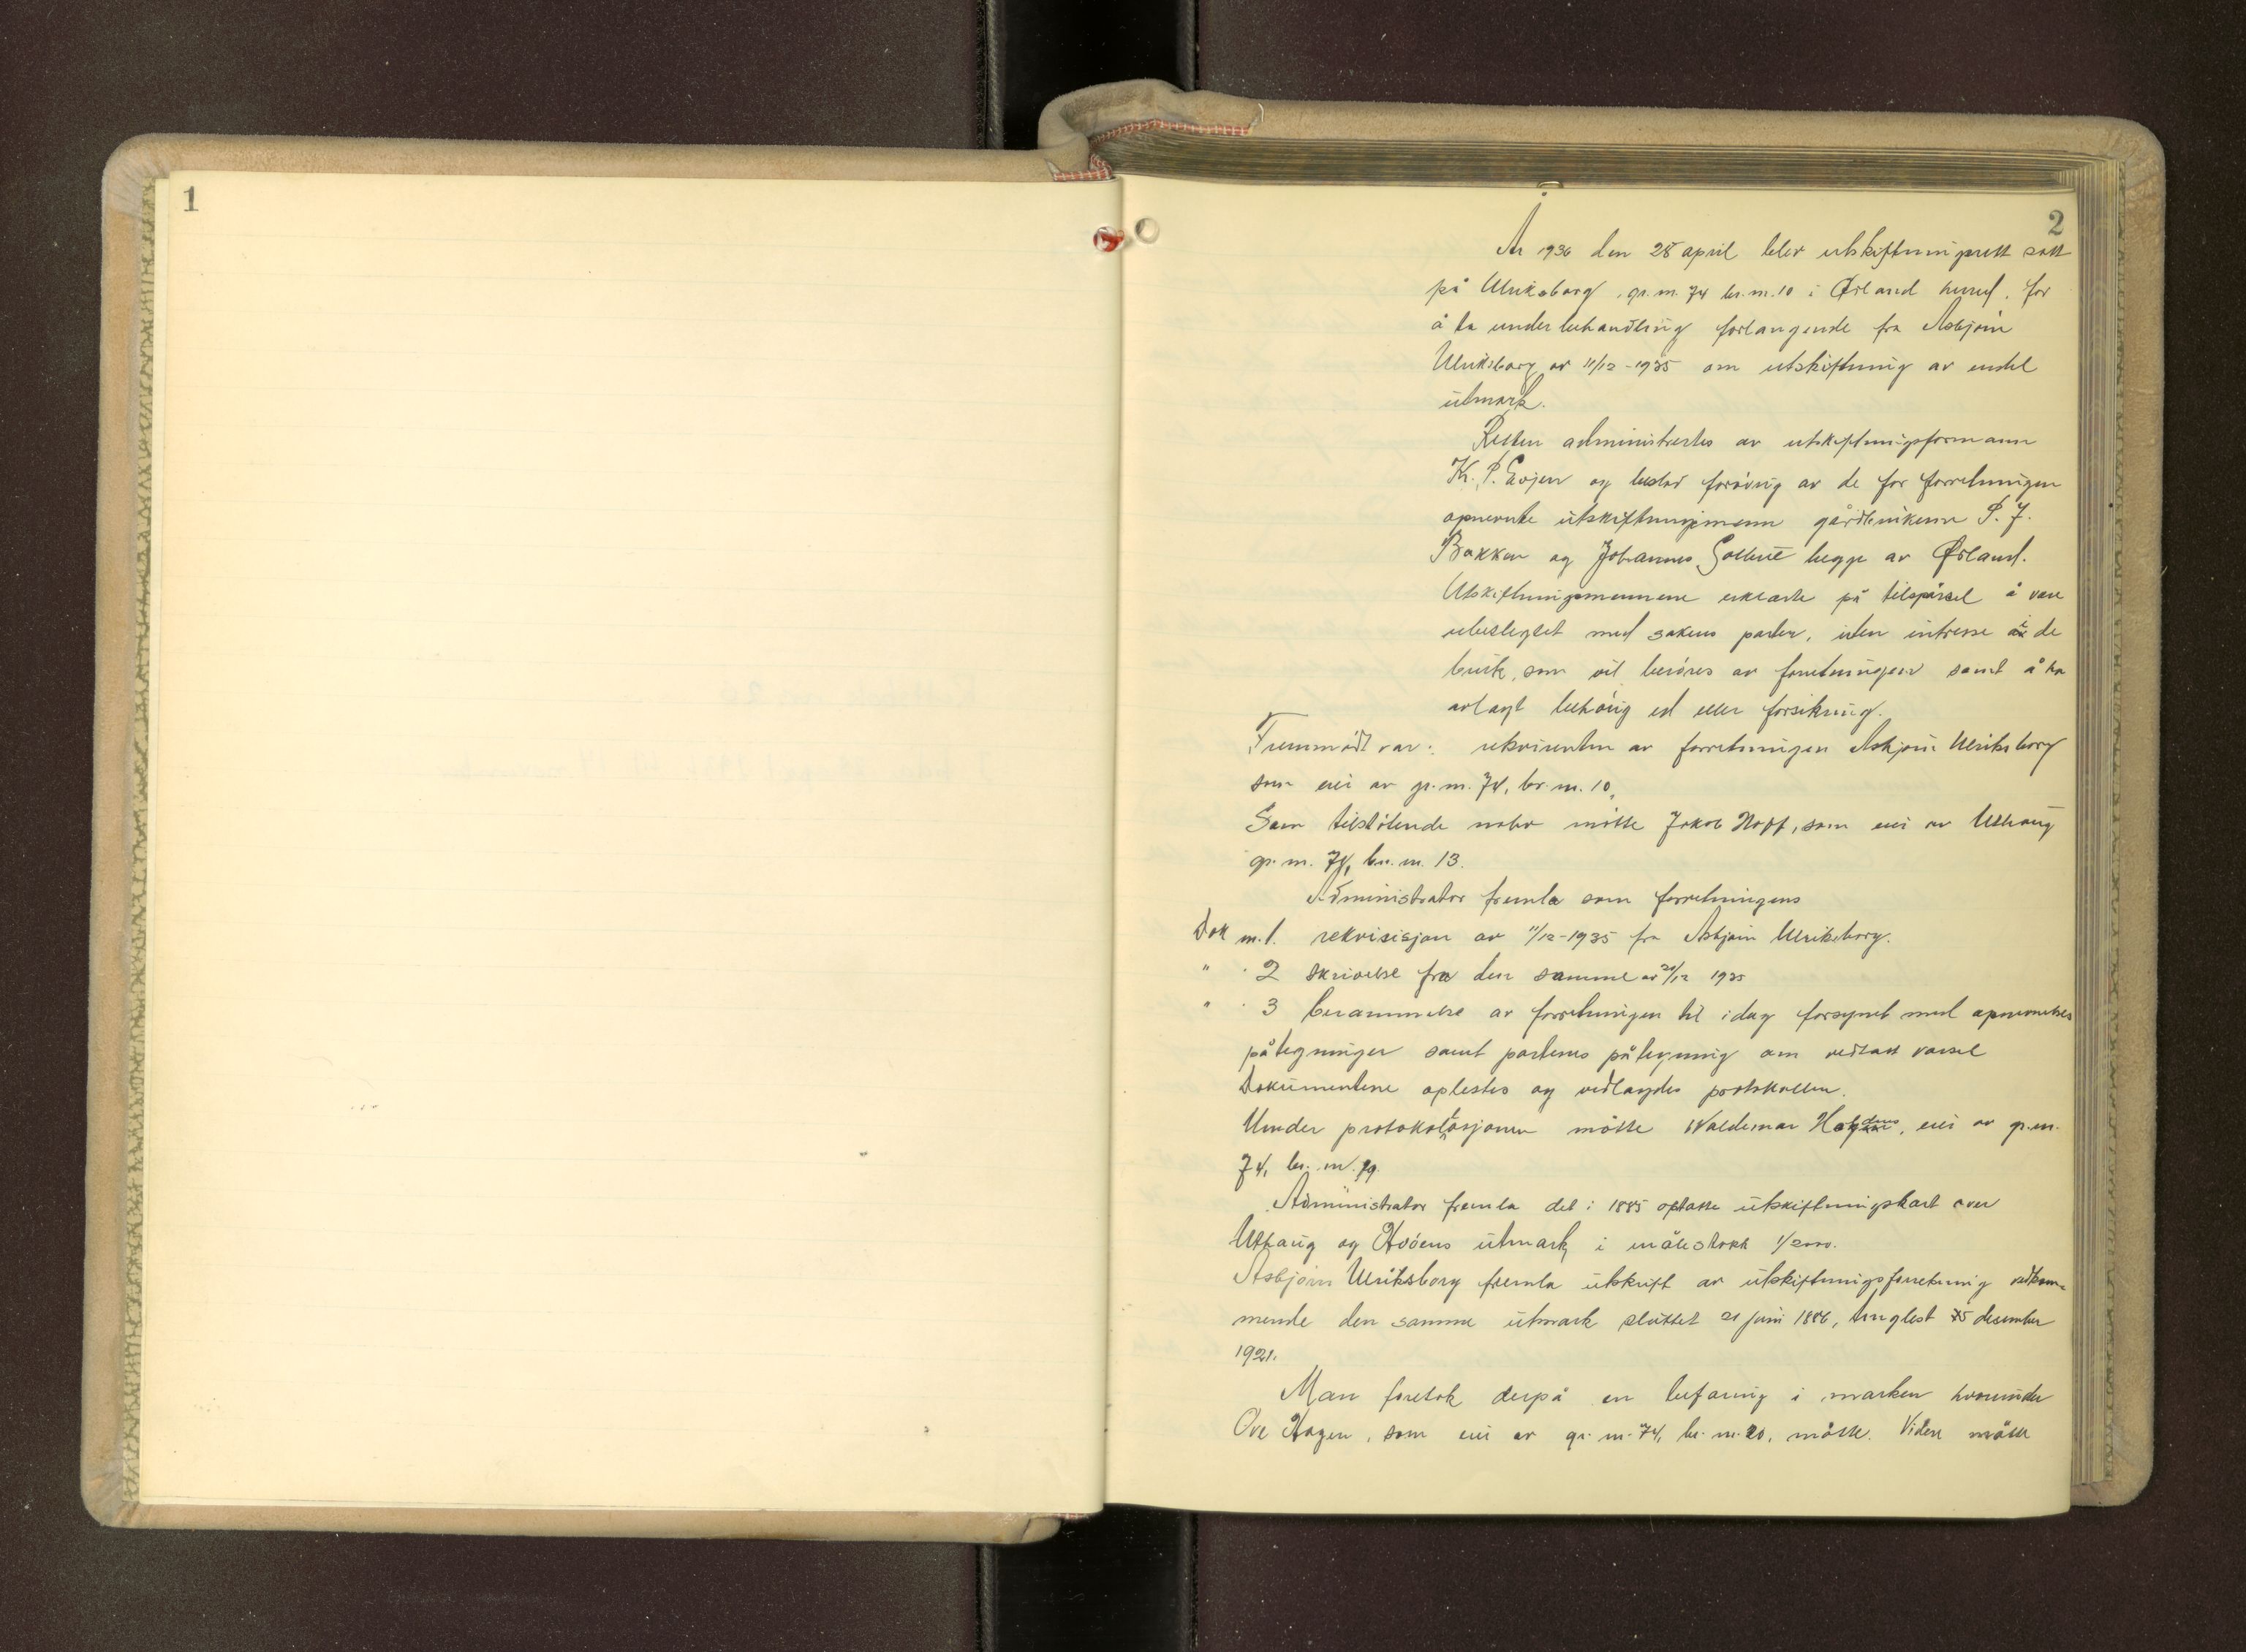 1
2
År 1936 den 28 april blev utskiftningsrett satt
på Ulriksborg, gr. nr. 74 br. nr. 10 i Ørland herred, for
å ta under behandling forlangende fra Asbjørn
Ulriksborg av 11/12 - 1935 om utskiftning av endel
utmark.
Retten administrertes av utskiftningsformann
K. P. Evjen og bestod forøvrig av de for forretningen
opnevnte utskiftningsmenn gårdbrukerne P. J.
Bakken og Johannes begge av Ørland.
Utskiftningsmennene erklærte på tilspørsel å være
ubeslegtet med sakens parter, uten intresse i de
bruk, som vil berøres av forretningen samt å ha
avlagt behørig ed eller forsikring.
Fremmødt var: rekvirenten av forretningen Asbjørn Ulriksborg
som eier av gr. nr. 74, br. nr. 10.
Som tilstøtende nabo møtte Jakob Hoff, som eier av Uthaug
gr. nr. 74, br. nr. 13.
Administrator fremla som forretningens
Dok nr. 1. rekvisisjon av 11/12 - 1935 fra Asbjørn Ulriksborg.
" . 2 skrivelse fra den samme av 20/12 1935
" . 3 berammelse av forretningen til idag forsynet med opnevnelses
påtegninger samt partenes påtegning om vedtatt varsel
Dokumentene oplestes og vedlagdes protokollen.
Under protokollasjonen møtte Valdemar, eier av gr. nr.
74, br. nr. 19.
Administrator fremla det i 1885 optatte utskiftningskart over
Uthaug og Hovdens utmark, i målestokk 1/2000.
Asbjørn Ulriksborg fremla utskrift av utskiftningsforretning vedkom-
mende den samme utmark sluttet 21 juni 1886, tinglest 15 desember
1921.
Man foretok derpå en befaring i marken hvorunder
Ove Hagen, som eier av gr. nr. 74, br. nr. 20, møtte. Videre møtte